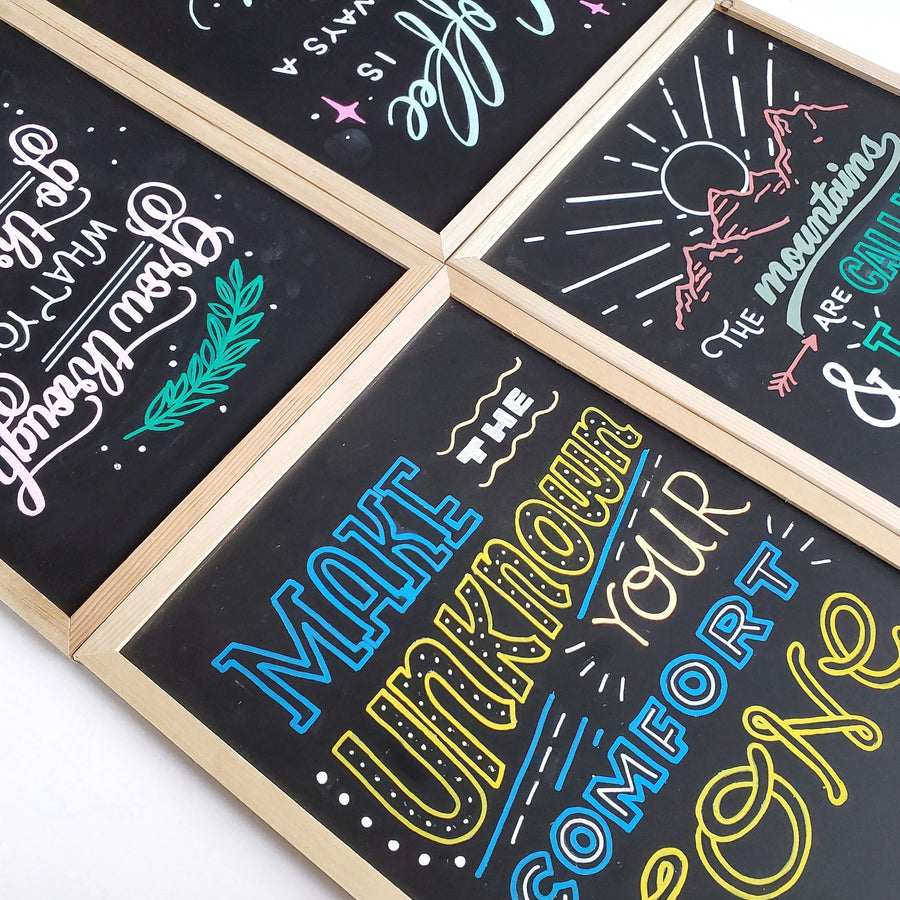 Coffee
IS
WAYS A
Grow through
WHAT YO
go th
THE mountains
ARE CALL
& T
MAKE THE
UNKNOWN
YOUR
COMFORT
ZONE